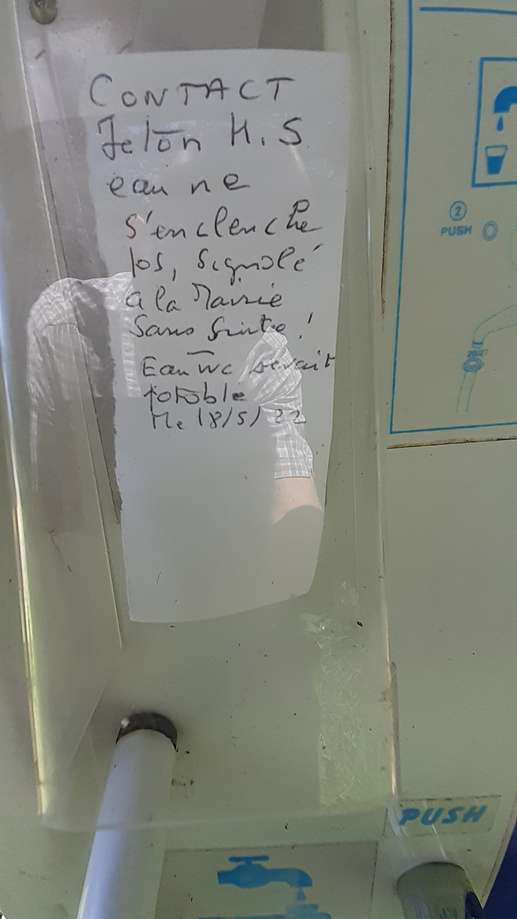 CONTACT
Jeton H.S
eau ne
s'enclenche
pas, signalé
a la Mairie
sans suite!
Eau WC serait
potable
Me 18/5/22
2
PUSH
PUSH